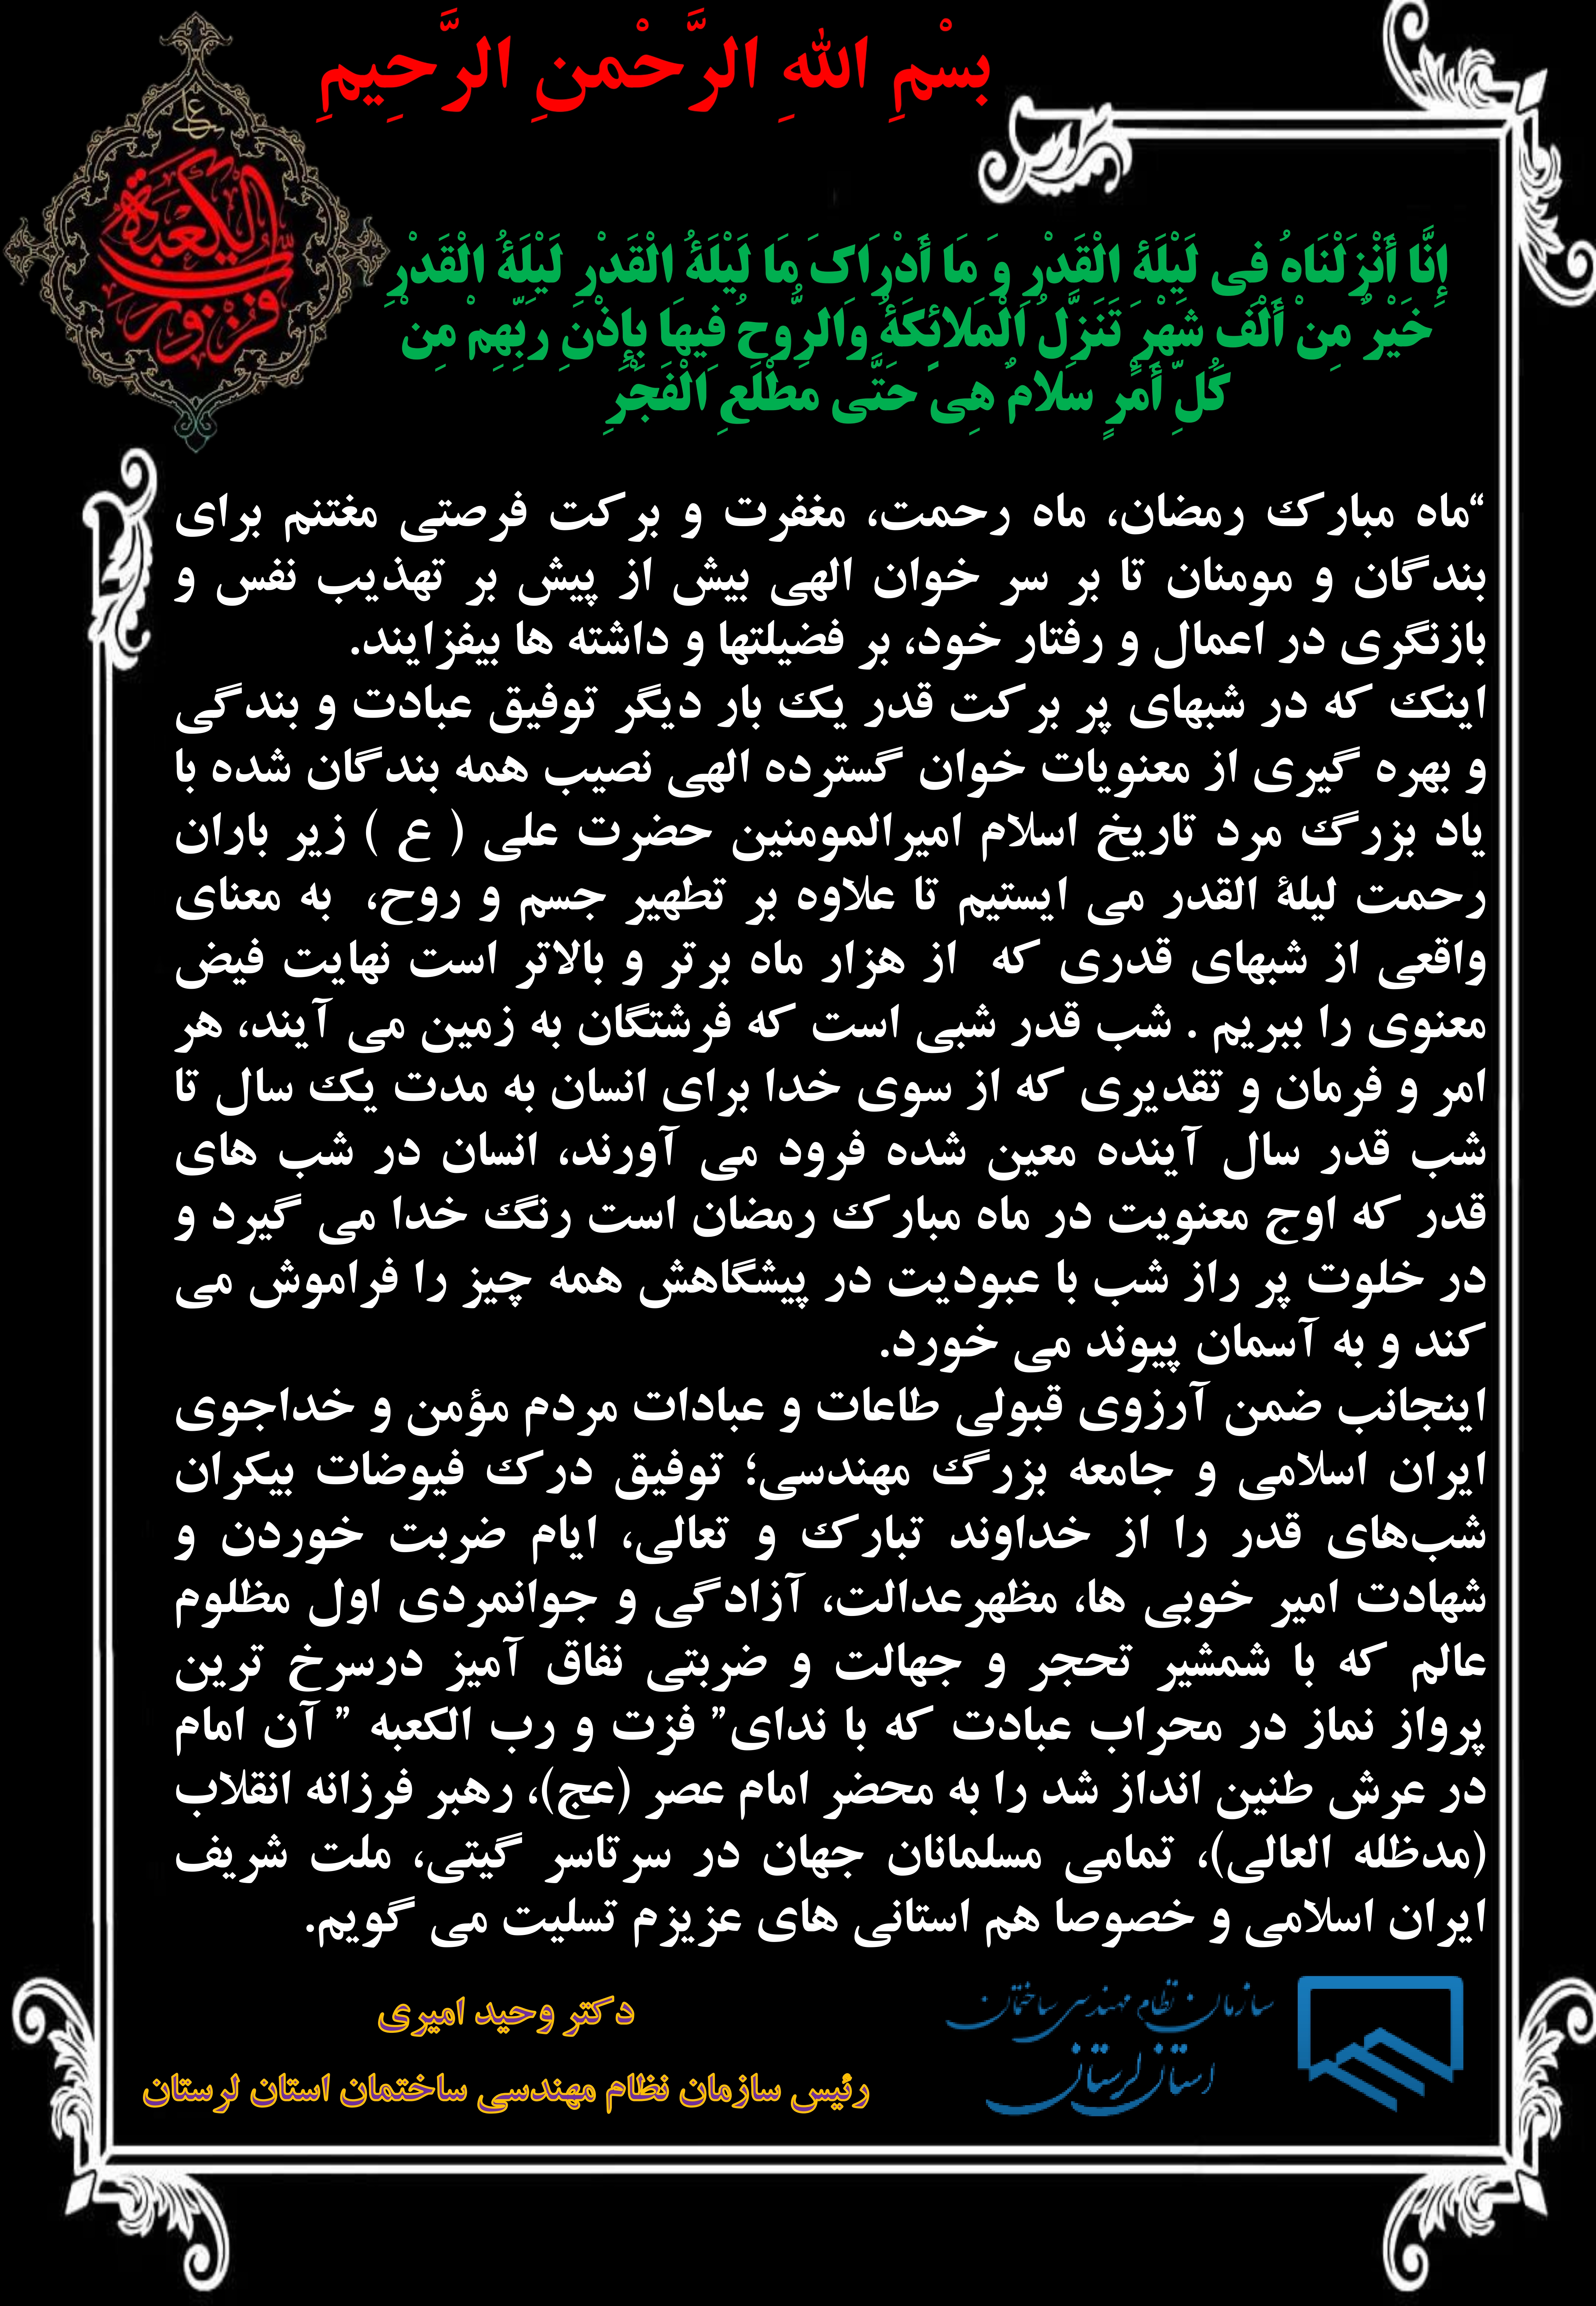 بسْمِ اللهِ الرَّحْمنِ الرَّحِیمِ
علی
فزت و رب الکعبة
إِنَّا أَنْزَلْنَاهُ فِی لَیْلَةِ الْقَدْرِ وَ مَا أَدْرَاکَ مَا لَیْلَةُ الْقَدْرِ لَیْلَةُ الْقَدْرِ
خَیْرٌ مِنْ أَلْفِ شَهْرٍ تَنَزَّلُ الْمَلائِکَةُ وَالرُّوحُ فِیهَا بِإِذْنِ رَبِّهِمْ مِنْ
کُلِّ أَمْرٍ سَلامٌ هِیَ حَتَّى مَطْلَعِ الْفَجْرِ
“ماه مبارک رمضان، ماه رحمت، مغفرت و برکت فرصتی مغتنم برای
بندگان و مومنان تا بر سر خوان الهی بیش از پیش بر تهذیب نفس و
بازنگری در اعمال و رفتار خود، بر فضیلتها و داشته ها بیفزایند.
اینک که در شبهای پر برکت قدر یک بار دیگر توفیق عبادت و بندگی
و بهره گیری از معنویات خوان گسترده الهی نصیب همه بندگان شده با
یاد بزرگ مرد تاریخ اسلام امیرالمومنین حضرت علی ( ع ) زیر باران
رحمت لیلة القدر می ایستیم تا علاوه بر تطهیر جسم و روح، به معنای
واقعی از شبهای قدری که از هزار ماه برتر و بالاتر است نهایت فیض
معنوی را ببریم . شب قدر شبی است که فرشتگان به زمین می آیند، هر
امر و فرمان و تقدیری که از سوی خدا برای انسان به مدت یک سال تا
شب قدر سال آینده معین شده فرود می آورند، انسان در شب های
قدر که اوج معنویت در ماه مبارک رمضان است رنگ خدا می گیرد و
در خلوت پر راز شب با عبودیت در پیشگاهش همه چیز را فراموش می
کند و به آسمان پیوند می خورد.
اینجانب ضمن آرزوی قبولی طاعات و عبادات مردم مؤمن و خداجوی
ایران اسلامی و جامعه بزرگ مهندسی؛ توفیق درک فیوضات بیکران
شب‌های قدر را از خداوند تبارک و تعالی، ایام ضربت خوردن و
شهادت امیر خوبی ها، مظهرعدالت، آزادگی و جوانمردی اول مظلوم
عالم که با شمشیر تحجر و جهالت و ضربتی نفاق آمیز درسرخ ترین
پرواز نماز در محراب عبادت که با ندای” فزت و رب الکعبه ” آن امام
در عرش طنین انداز شد را به محضر امام عصر (عج)، رهبر فرزانه انقلاب
(مدظله العالی)، تمامی مسلمانان جهان در سرتاسر گیتی، ملت شریف
ایران اسلامی و خصوصا هم استانی های عزیزم تسلیت می گویم.
سازمان نظام مهندسی ساختمان
استان لرستان
دکتر وحید امیری
رئیس سازمان نظام مهندسی ساختمان استان لرستان